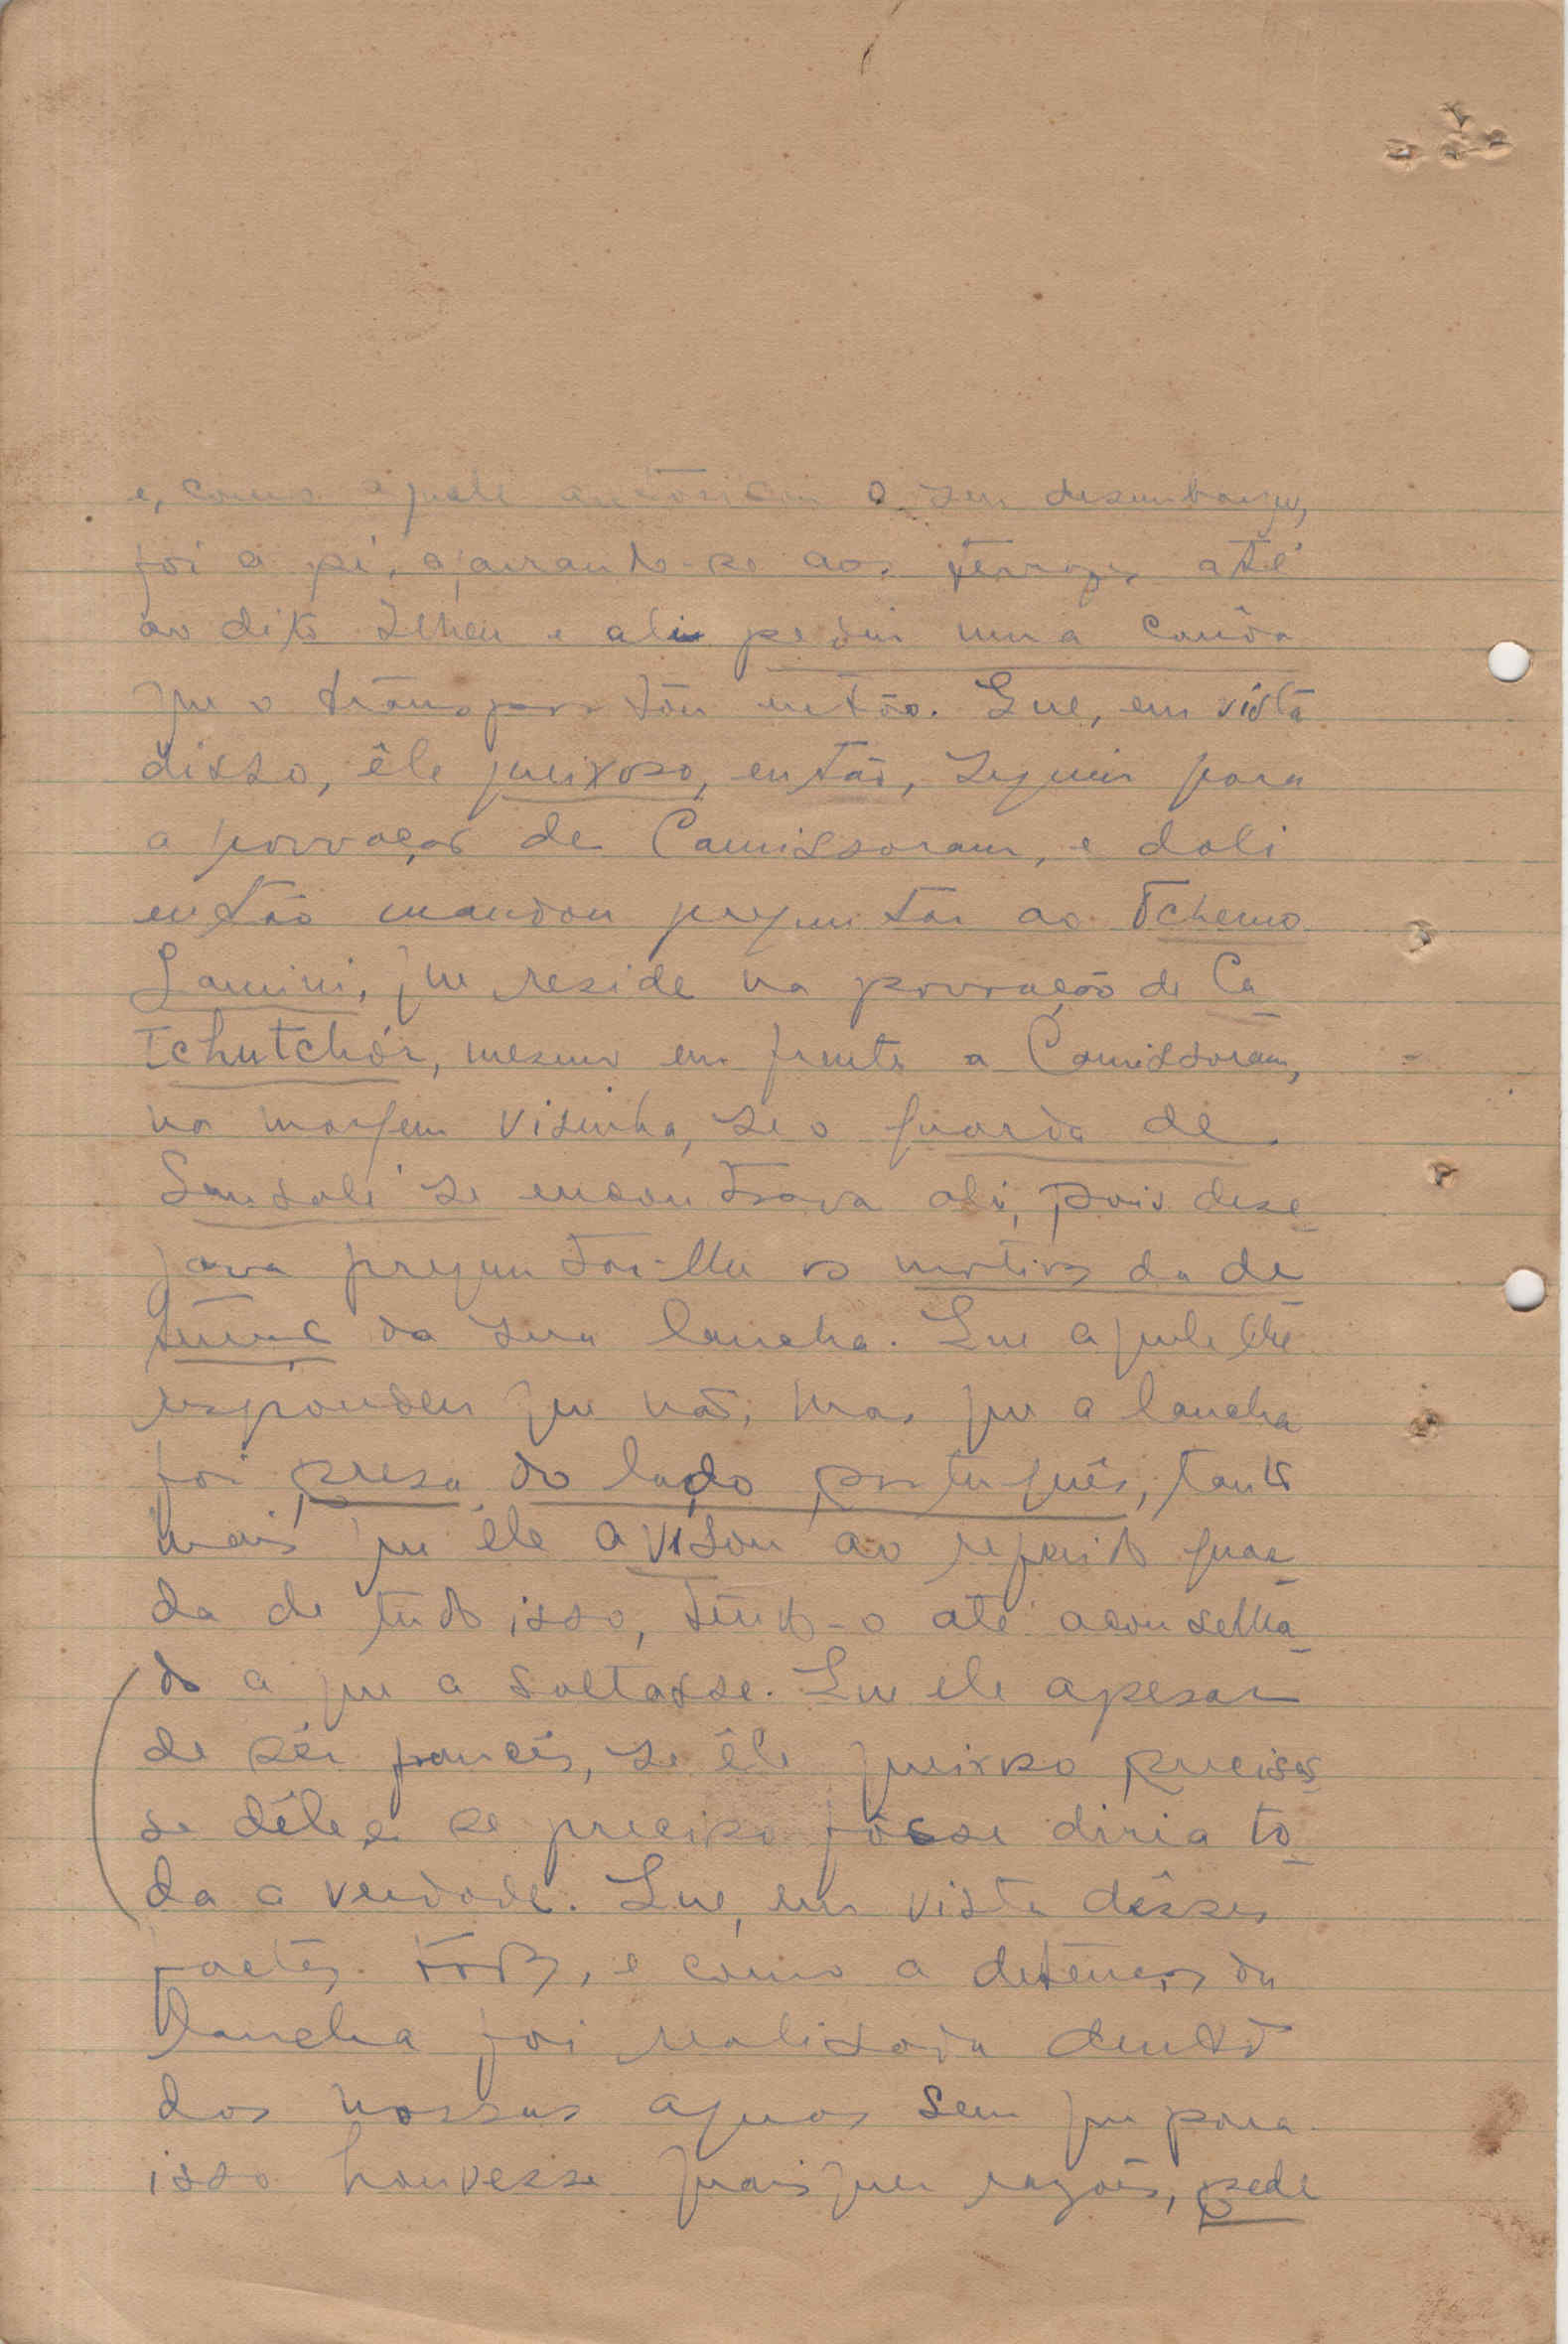 e, como aquele autorisou o seu desembarque,
foi a pé, agarrando-se aos até
ao dito Ilheu e ali pediu uma canôa
que o transportou então. Que, em vista
disso, êle queixoso, então, seguiu para
a povoação de Camissoram, e dali
então mandou preguntar ao Tcherno
Lamini, que reside na povoação de Ca-
tchutchór, mesmo em frente a Camissoram,
na margem visinha, se o guarda de
se encontrava ali, pois dese-
java preguntar-lhe os motivos da de-
tenção da sua lancha. Que aquele lhe
respondeu que não, mas que a lancha
foi presa do lado português, tanto
mais que êle avisou ao referido guar-
da de tudo isso, tendo-o até aconselha-
do a que a soltasse. Que ele apesar
de sêr francês, se êle queixoso precisas-
se dêle e se preciso fôsse diria to-
da a verdade. Que, em vista dêsses
factos todos, e como a detenção da
lancha foi realisada dentro
das nossas aguas sem que para
isso houvesse quaisquer razões, pede